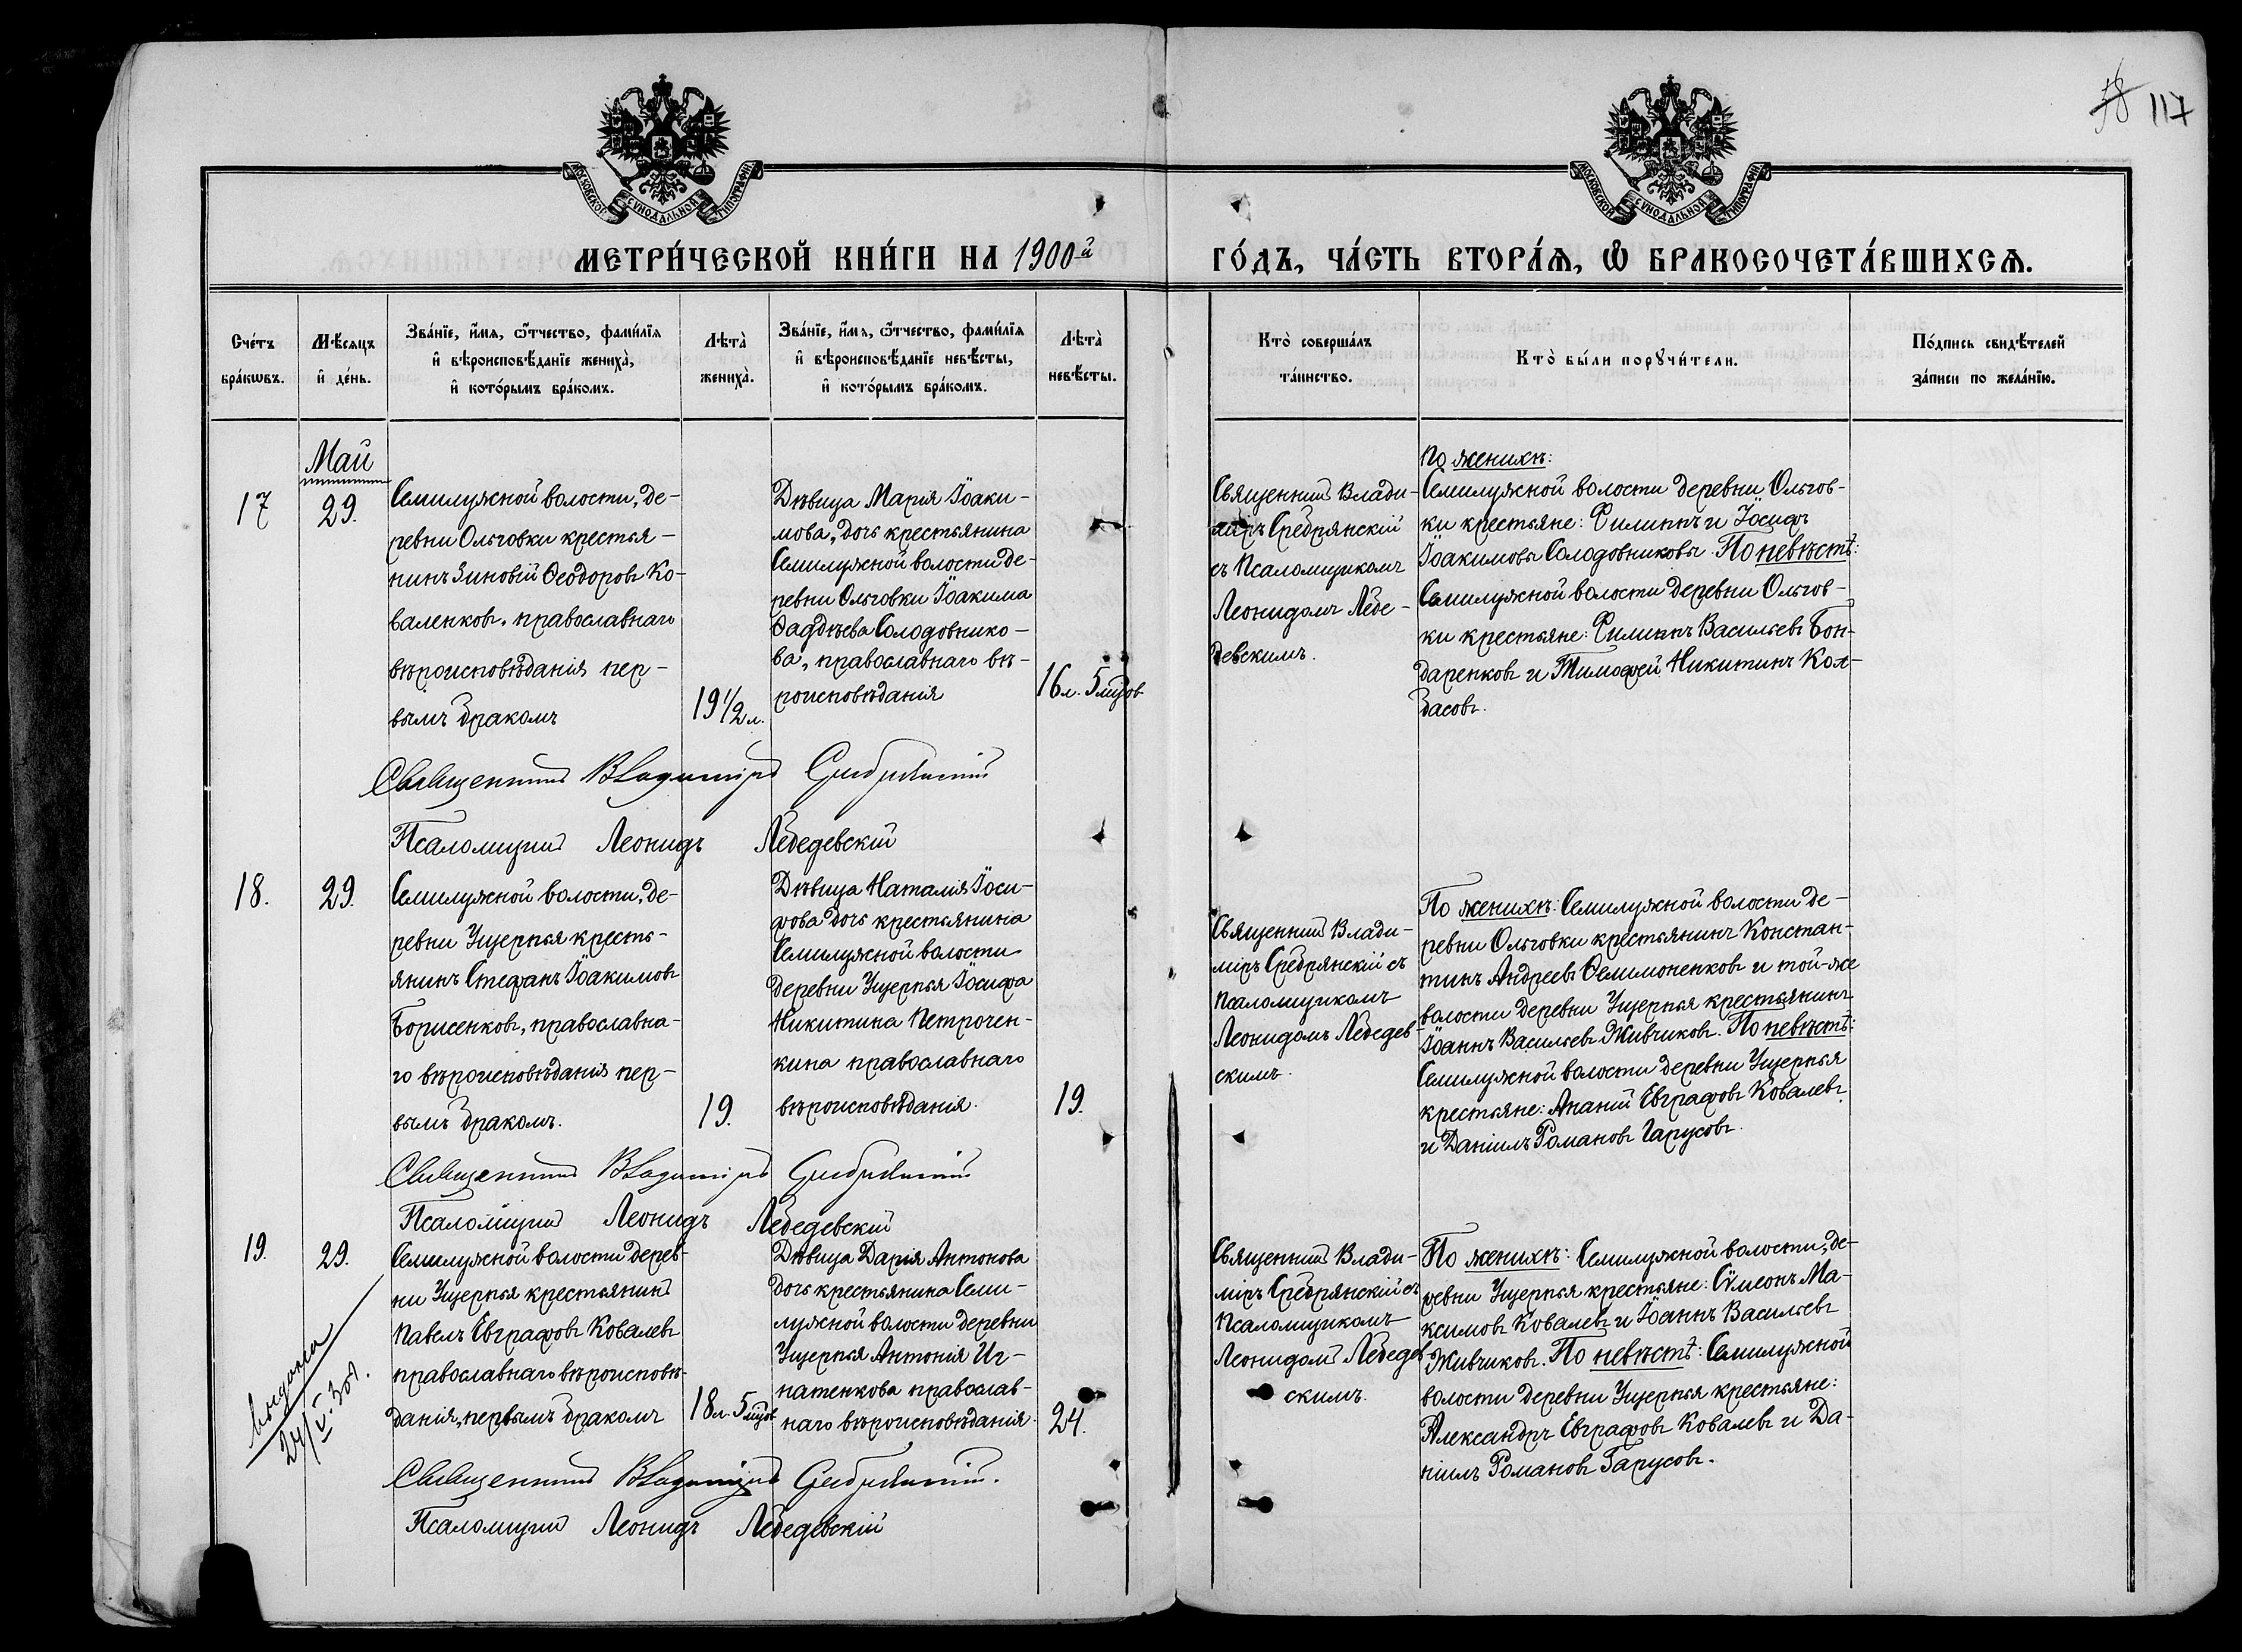 58 117
МОСКОВСКОЙ СѴНОДАЛЬНОЙ ТИПОГРАФІИ
МОСКОВСКОЙ СѴНОДАЛЬНОЙ ТИПОГРАФІИ
МЕТРИ́ЧЕСКОЙ КНИ́ГИ НА 1900й ГО́ДЪ, ЧА́СТЬ ВТОРА́Я, Ѡ БРАКОСОЧЕТА́ВШИХСЯ.
Сче́тъ
бра́кѡвъ.
Мѣ́сяцъ
и҆ де́нь.
Зва́нїе, и҆́мя, ѻ҆́тчество, фами́лїя
и҆ вѣроисповѣ́данїе жениха̀,
и҆ кото́рымъ бра́комъ.
Лѣта̀
жениха̀.
Зва́нїе, и҆́мя, ѻ҆́тчество, фами́лїя
и҆ вѣроисповѣ́данїе невѣ́сты,
и҆ кото́рымъ бра́комъ.
Лѣта̀
невѣ́сты.
Кто̀ соверша́лъ
та́инство.
Кто̀ бы́ли порꙋчи́тели.
По́дпись свидѣ́телей
за́писи по жела́нїю.
Май
17
29.
Семилужной волости, де-
ревни Ольговки крестья-
нинъ Зиновій Ѳеодоровъ Ко-
валенковъ, православнаго
вѣроисповѣданія пер-
вымъ бракомъ
19 1/2 л.
Дѣвица Марія Іоаки-
мова, дочь крестьянина
Семилужной волости де-
ревни Ольговки Іоакима
Ѳаддѣева Солодовнико-
ва, православнаго вѣ-
роисповѣданія
16 л. 5 мцов
Священникъ Влади-
міръ Сребрянскій
съ Псаломщикомъ
Леонидомъ Лебе-
девскимъ.
По женихѣ:
Семилужной волости деревни Ольгов-
ки крестьяне: Филиппъ и Іосифъ
Іоакимовы Солодовниковы. По невѣстѣ:
Семилужной волости деревни Ольгов-
ки крестьяне: Филиппъ Васильевъ Бон-
даренковъ и Тимофей Никитинъ Кол-
басовъ.
Священникъ Владиміръ Сребрянскій
Псаломщикъ Леонидъ Лебедевскій
18.
29.
Семилужной волости, де-
ревни Ущерпья кресть-
янинъ Стефанъ Іоакимовъ
Борисенковъ, православна-
го вѣроисповѣданія пер-
вымъ бракомъ.
19.
Дѣвица Наталія Іоси-
фова дочь крестьянина
Семилужной волости
деревни Ущерпья Іосифа
Никитина Петрочен-
кина православнаго
вѣроисповѣданія.
19.
Священникъ Влади-
міръ Сребрянскій съ
Псаломщикомъ
Леонидомъ Лебедев-
скимъ.
По женихѣ: Семилужной волости де-
ревни Ольговки крестьянинъ Констан-
тинъ Андреевъ Селимоненковъ и той-же
волости деревни Ущерпья крестьянинъ
Іоаннъ Васильевъ Живчиковъ. По невѣстѣ:
Семилужной волости деревни Ущерпья
крестьяне: Ананій Евграфовъ Ковалевъ
и Даніилъ Романовъ Гарусовъ.
Священникъ Владиміръ Сребрянскій
Псаломщикъ Леонидъ Лебедевскій
19.
29.
Семилужной волости дерев-
ни Ущерпья крестьянинъ
Павелъ Евграфовъ Ковалевъ
православнаго вѣроисповѣ-
данія, первымъ бракомъ
18 л. 5 мцов
Дѣвица Дарія Антонова
дочь крестьянина Семи-
лужной волости деревни
Ущерпья Антонія Иг-
натенкова православ-
наго вѣроисповѣданія.
24.
Священникъ Влади-
міръ Сребрянскій съ
Псаломщикомъ
Леонидомъ Лебедев-
скимъ.
По женихѣ: Семилужной волости, де-
ревни Ущерпья крестьяне: Сѵмеонъ Ма-
ксимовъ Ковалевъ и Іоаннъ Васильевъ
Живчиковъ. По невѣстѣ: Семилужной
волости деревни Ущерпья крестьяне:
Александръ Евграфовъ Ковалевъ и Да-
ніилъ Романовъ Гарусовъ.
выдана
24/V-30г.
Священникъ Владиміръ Сребрянскій.
Псаломщикъ Леонидъ Лебедевскій